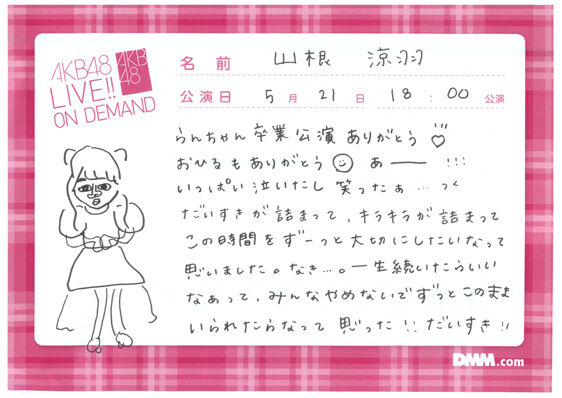 AKB48
LIVE!!
ON DEMAND
AKB
48
名前 山根 涼羽
公演日 5月21日 18:00公演
らんちゃん卒業公演ありがとう
おひるもありがとう あー !!!
いっぱい泣いたし 笑ったぁ…っく
だいすきが詰まって、キラキラが詰まって
この時間をずーっと大切にしたいなって
思いました。なき…。一生続いたらいい
なあって、みんなやめないでずっとこのまま
いられたらなって思った!!だいすき!!
DMM.com